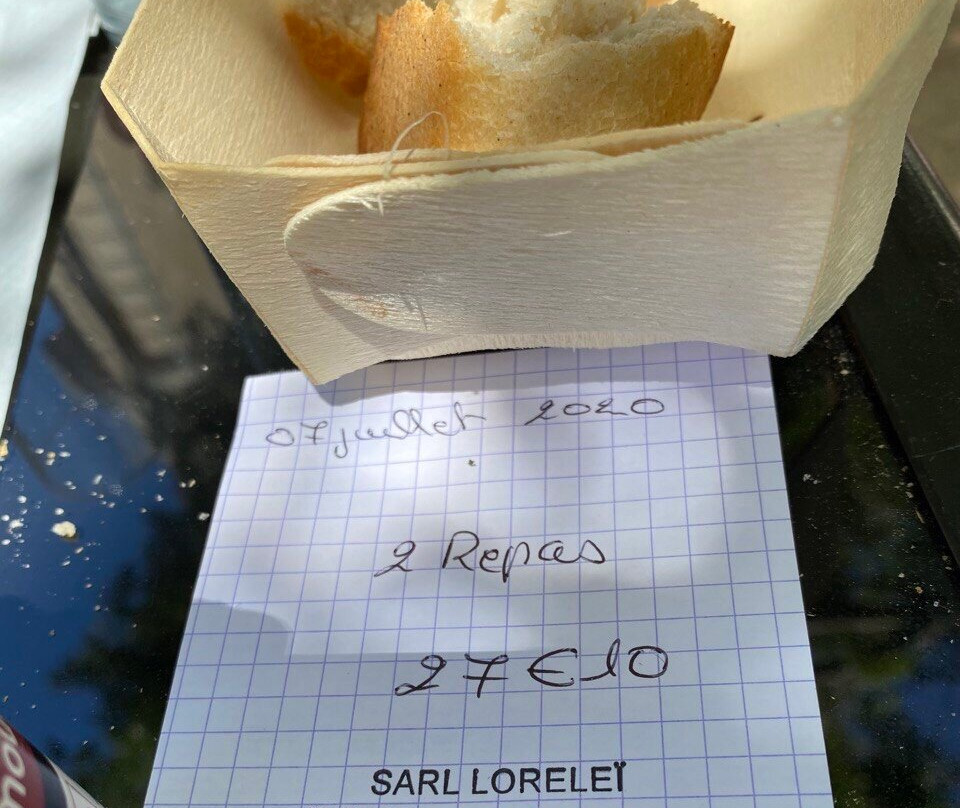 07 juillet 2020
2 Repas
27€10
SARL LORELEÏ